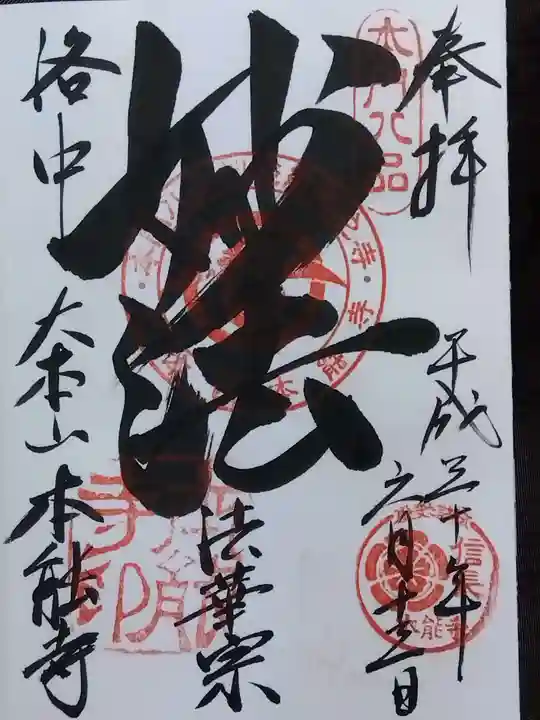 奉拝
平成三十年
六月十三日
妙法
法華宗
洛中
大本山本能寺
本門八品
信長
本能寺